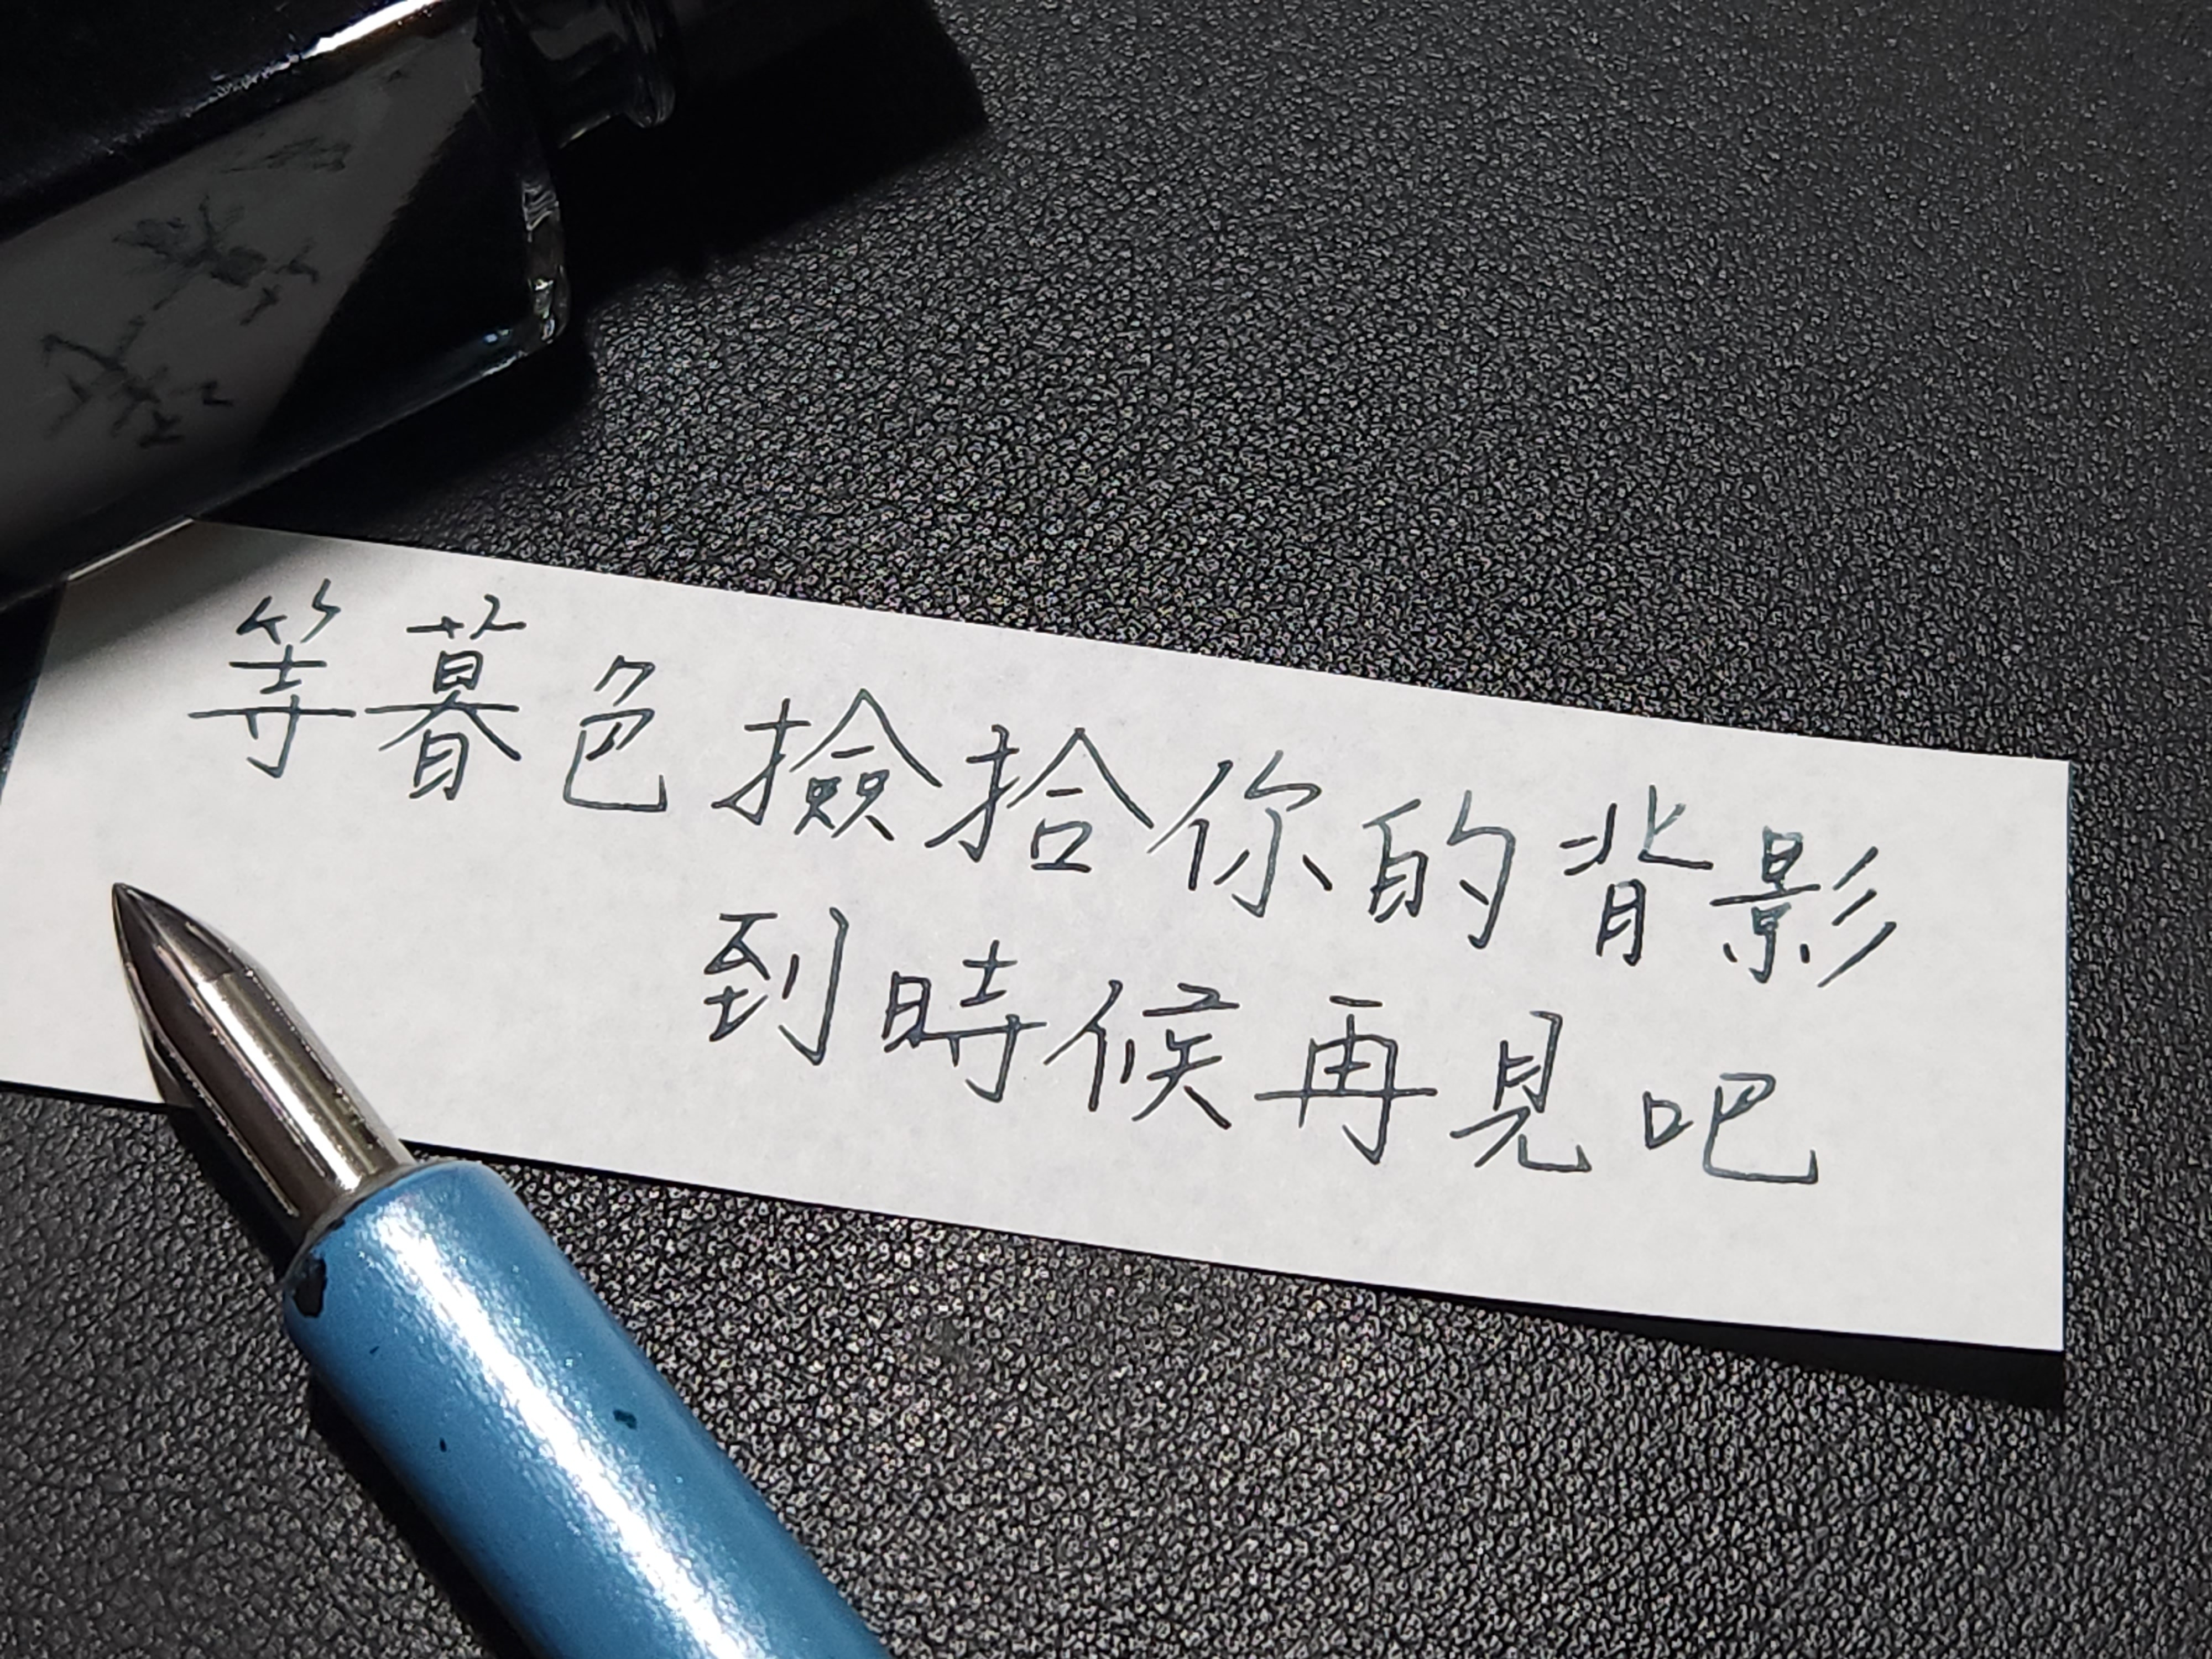 等暮色撿拾你的背影
到時候再見吧